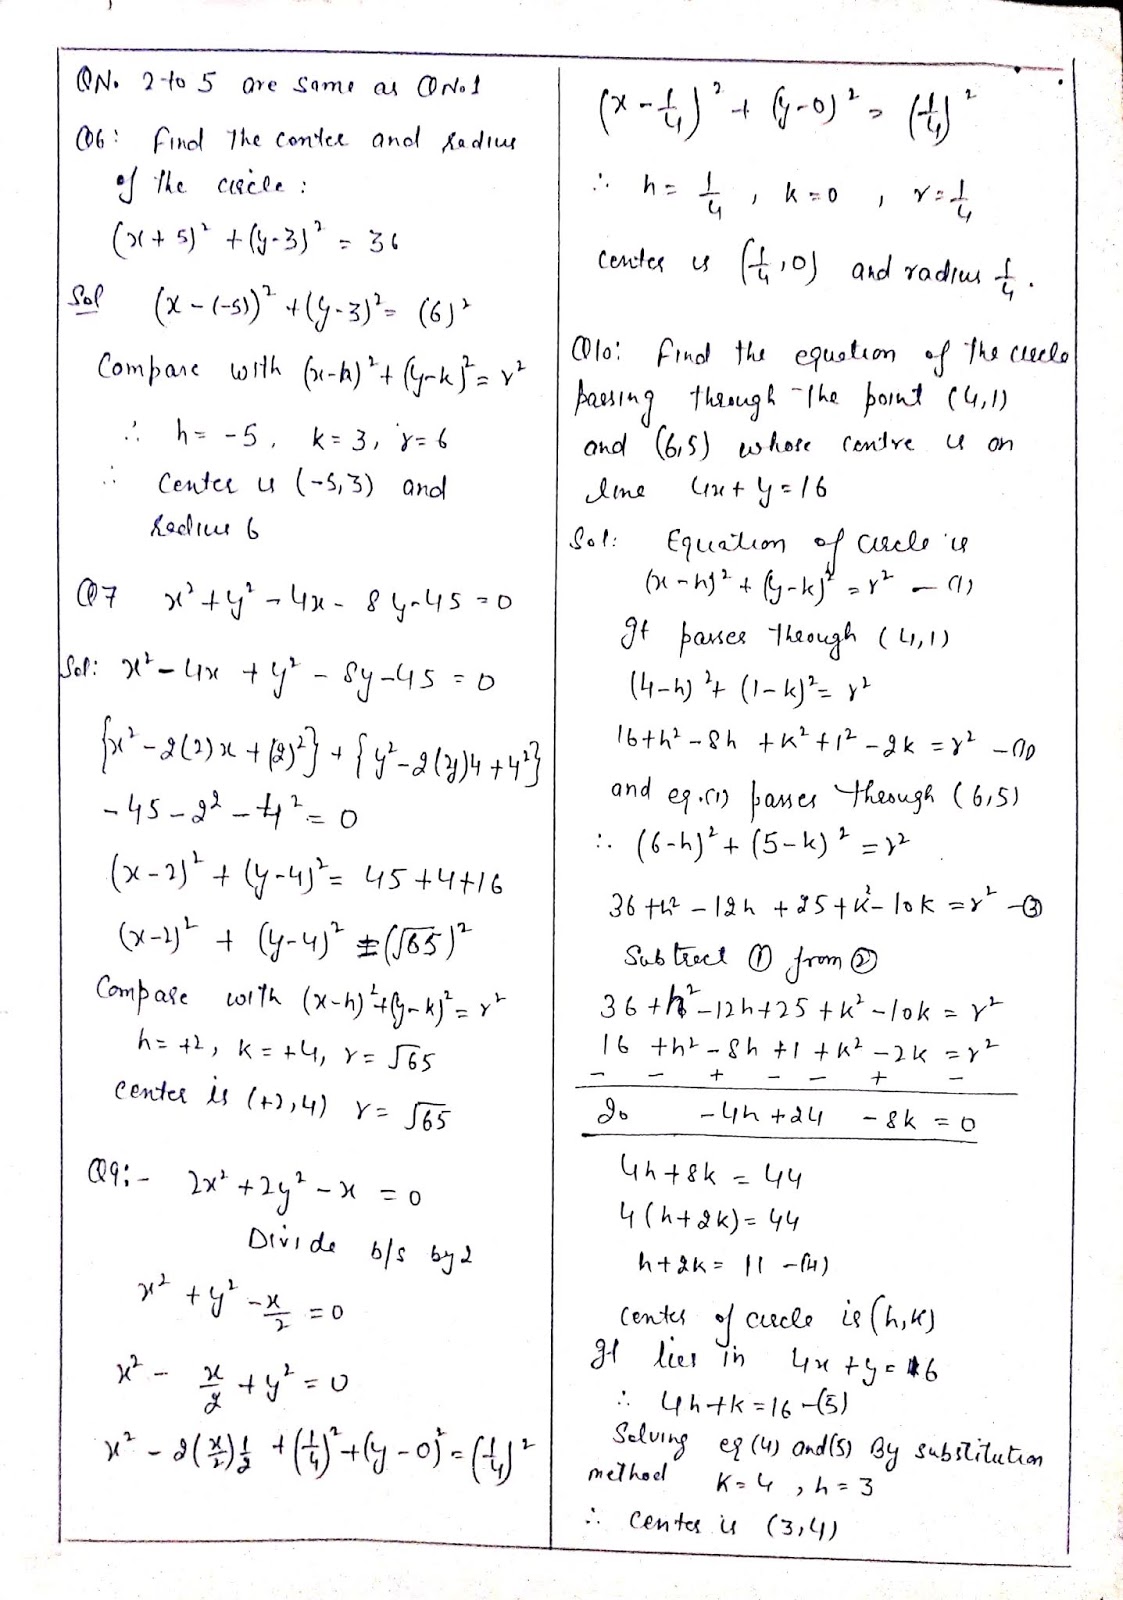 QNo 2 to 5 are same as QNo.1
Q6: Find The center and radius
of The circle :
(x + 5)² + (y-3)² = 36
Sol (x - (-5))² + (y-3)² = (6)²
Compare with (x-h)² + (y-k)² = r²
∴ h = -5, k = 3, r = 6
∴ Center is (-5,3) and
Radius 6
Q7 x² + y² - 4x - 8y - 45 = 0
Sol: x² - 4x + y² - 8y - 45 = 0
{x² - 2(2)x + (2)²} + {y² - 2(y)4 + 4²}
- 45 - 2² - 4² = 0
(x-2)² + (y-4)² = 45+4+16
(x-2)² + (y-4)² = (√65)²
Compare with (x-h)² + (y-k)² = r²
h = +2, k = +4, r = √65
Center is (+2,4) r = √65
Q9:- 2x² + 2y² - x = 0
Divide b/s by 2
x² + y² - x/2 = 0
x² - x/2 + y² = 0
x² - 2(x/2)1/2 + (1/4)² + (y-0)² = (1/4)²
(x - 1/4)² + (y-0)² = (1/4)²
∴ h = 1/4, k = 0, r = 1/4
Center is (1/4,0) and radius 1/4.
Q10: Find the equation of The circle
passing through The point (4,1)
and (6,5) whose centre is on
line 4x + y = 16
Sol: Equation of circle is
(x-h)² + (y-k)² = r² — (1)
It passes Through (4,1)
(4-h)² + (1-k)² = r²
16+h² - 8h + k² + 1² - 2k = r² —
and eq.(1) passes through (6,5)
∴ (6-h)² + (5-k)² = r²
36 + h² - 12h + 25 + k² - 10k = r² — (3)
Subtract ① from ②
36 + h² - 12h + 25 + k² - 10k = r²
16 + h² - 8h + 1 + k² - 2k = r²
- - + - - + -
20 - 4h + 24 - 8k = 0
4h + 8k = 44
4(h + 2k) = 44
h + 2k = 11 — (4)
Center of circle is (h,k)
It lies in 4x + y = 16
∴ 4h + k = 16 — (5)
Solving eq (4) and (5) By substitution
method K = 4, h = 3
∴ Center is (3,4)